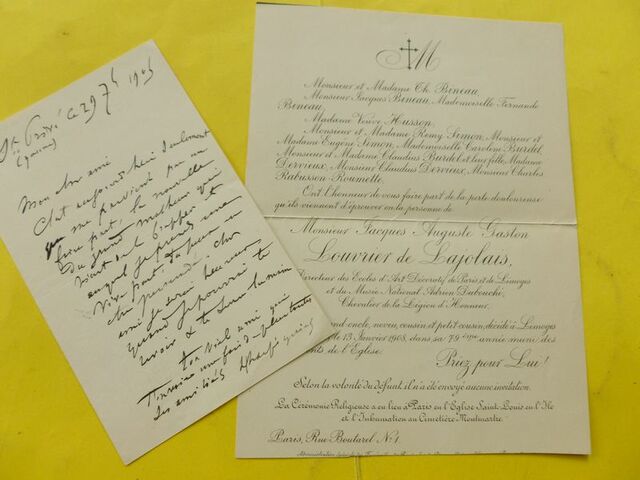 St Privé ce 29 7b 1905
(Yonne)
Mon bon ami
C'est aujourd'hui seulement
que me parvient par un
faire part, la nouvelle
du grand malheur qui
vient de frapper et
auquel je prends une
vive part,
ami je serai heureux
quand je pourrai te
revoir & te serrer la main
ton vieil ami qui
t'envoie une fois de plus toutes
ses amitiés
M
Monsieur et Madame Ch. Bineau,
Monsieur Jacques Bineau, Mademoiselle Fernande
Bineau,
Madame Veuve Husson,
Monsieur et Madame Remy Simon, Monsieur et
Madame Eugène Simon, Mademoiselle Caroline Burdel,
Monsieur et Madame Claudius Burdel et leur fille, Madame
Dervieux, Monsieur Claudius Dervieux, Monsieur Charles
Rabusson-Roumette,
Ont l'honneur de vous faire part de la perte douloureuse
qu'ils viennent d'éprouver en la personne de
Monsieur Jacques Auguste Gaston
Louvrier de Lajolais,
Directeur des Ecoles d'Art Décoratif de Paris et de Limoges
et du Musée National Adrien Dubouché,
Chevalier de la Légion d'Honneur,
nd oncle, neveu, cousin et petit cousin, décédé à Limoges
le 13 Janvier 1908, dans sa 79ème année, muni des
nts de l'Eglise.
Priez pour Lui!
Selon la volonté du défunt, il n'a été envoyé aucune invitation.
La Cérémonie Religieuse a eu lieu à Paris en l'Eglise Saint-Louis en l'Ile
et l'Inhumation au Cimetière Montmartre.
Paris, Rue Boutarel N° 1.